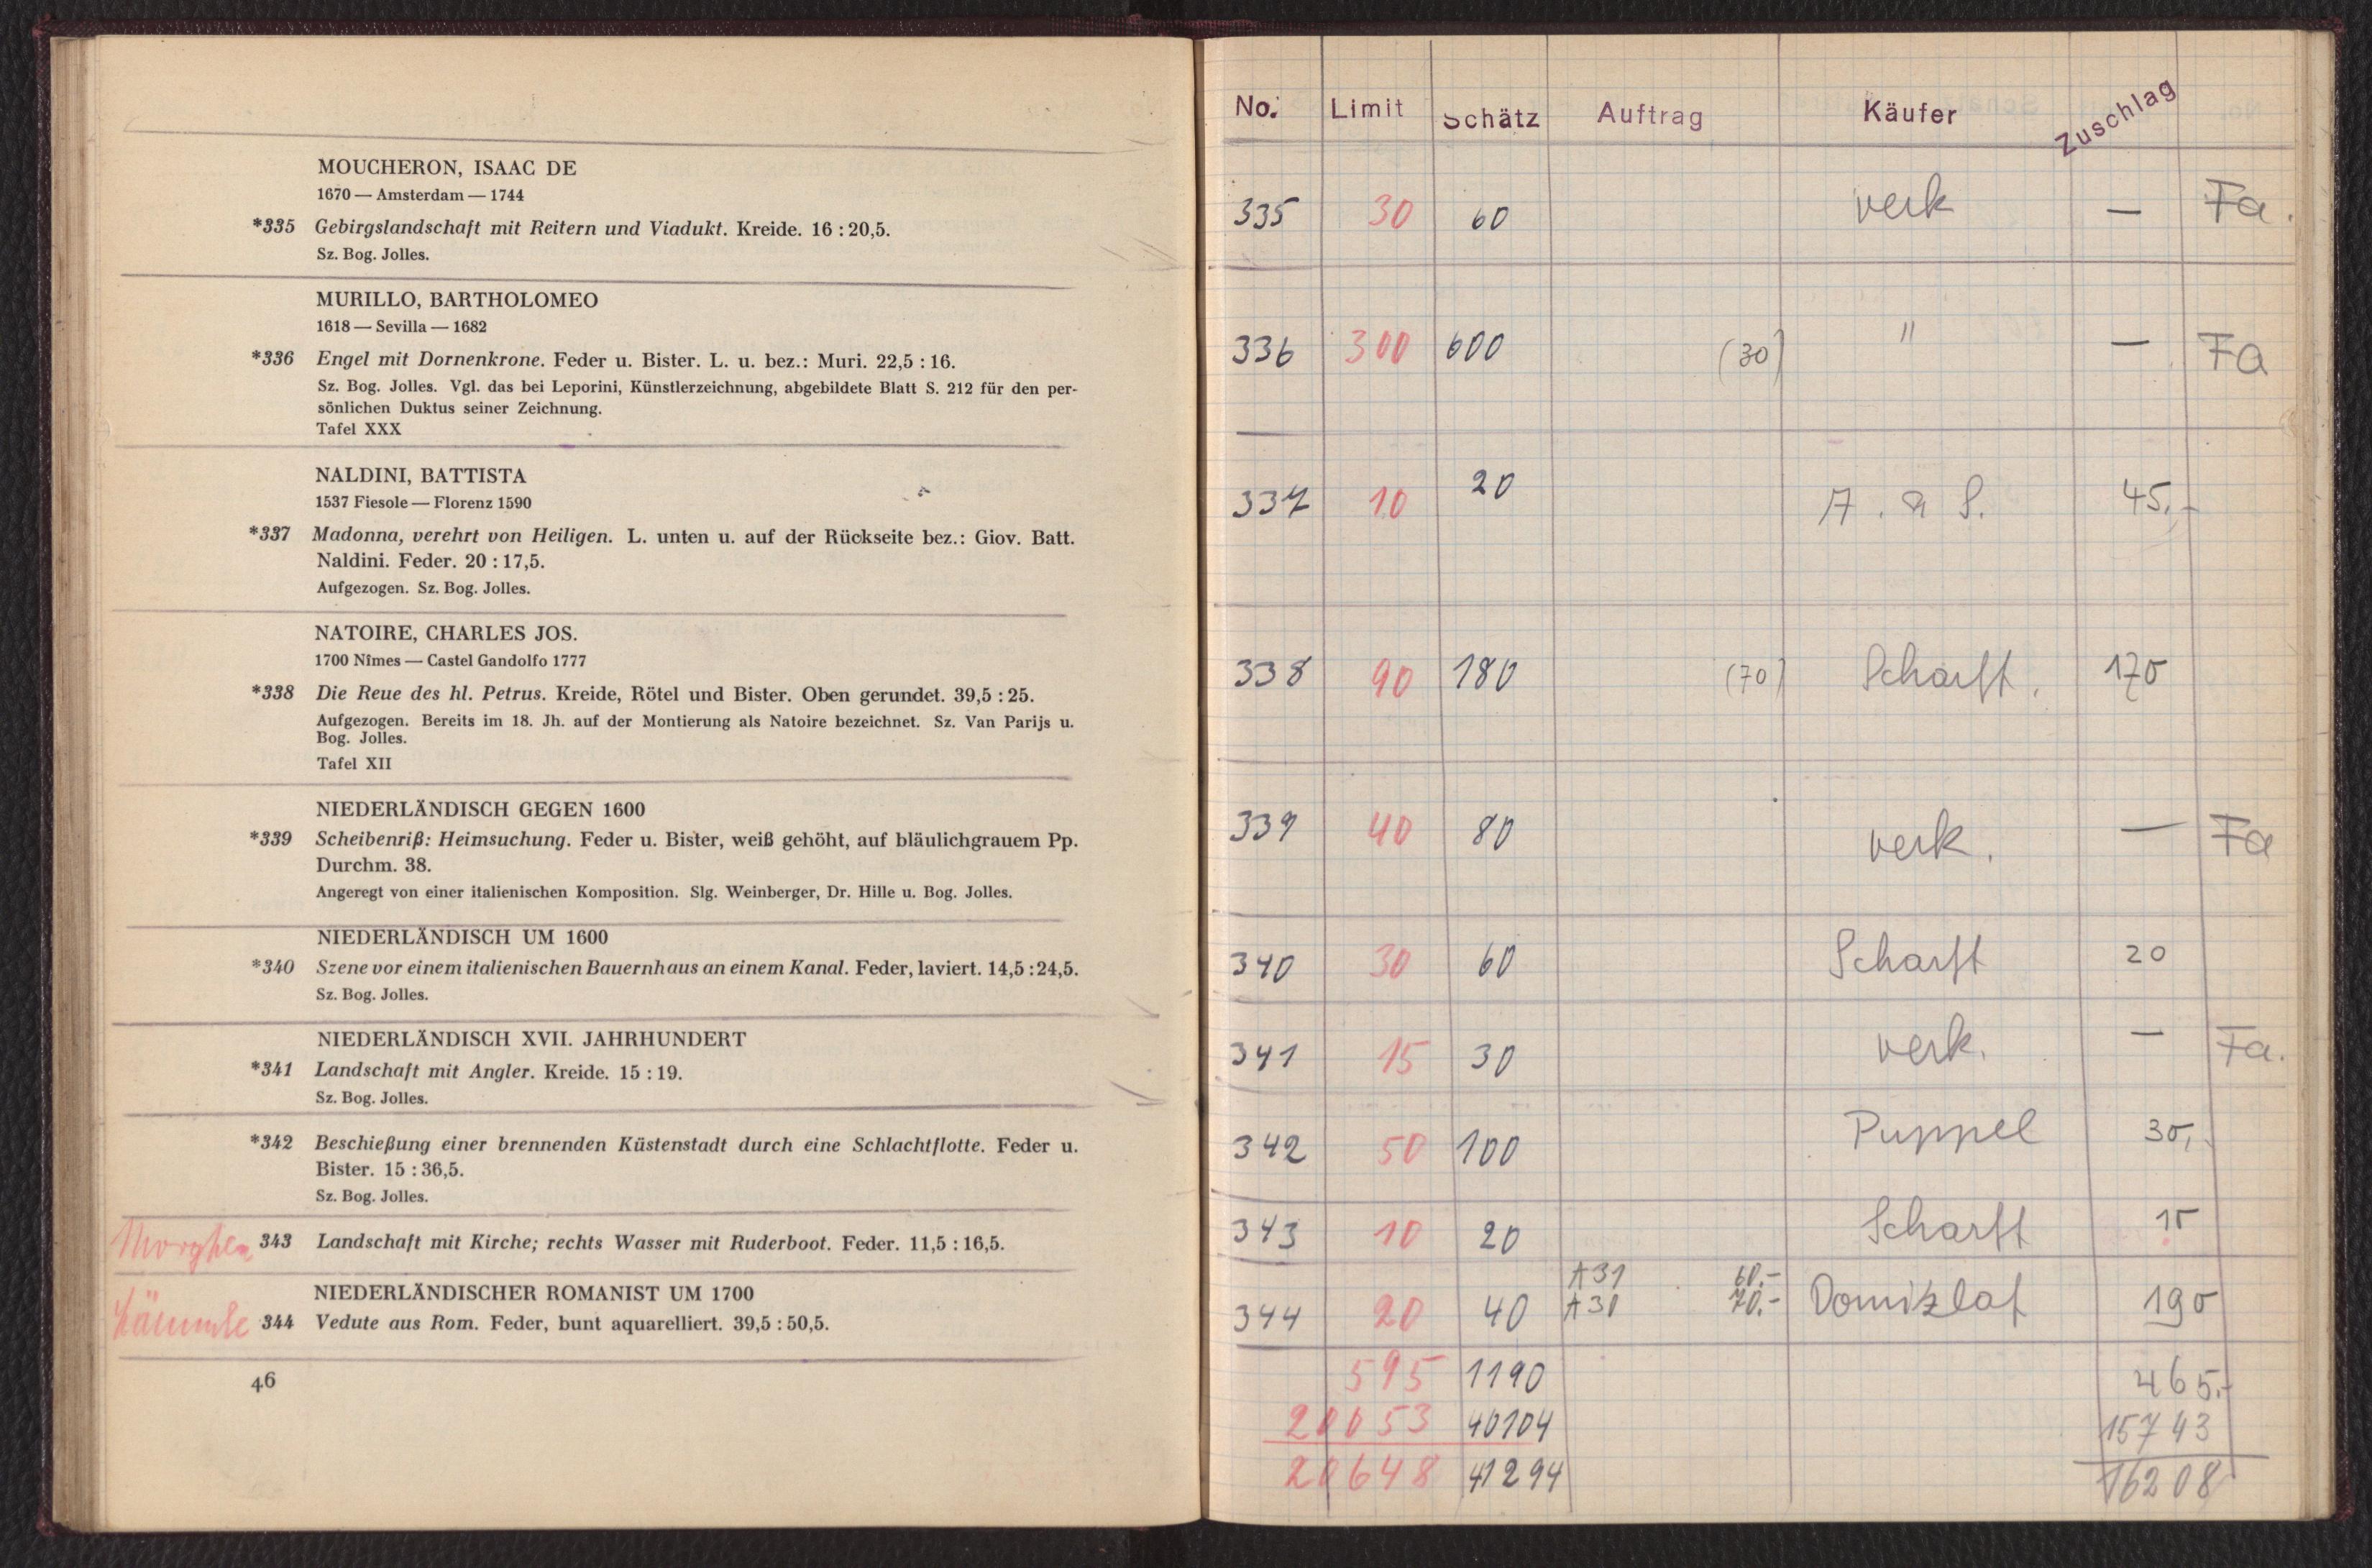 MOUCHERON, ISAAC DE
1670 — Amsterdam — 1744
*335 Gebirgslandschaft mit Reitern und Viadukt. Kreide. 16 : 20,5.
Sz. Bog. Jolles.
MURILLO, BARTHOLOMEO
1618 — Sevilla — 1682
*336 Engel mit Dornenkrone. Feder u. Bister. L. u. bez.: Muri. 22,5 : 16.
Sz. Bog. Jolles. Vgl. das bei Leporini, Künstlerzeichnung, abgebildete Blatt S. 212 für den per-
sönlichen Duktus seiner Zeichnung.
Tafel XXX
NALDINI, BATTISTA
1537 Fiesole — Florenz 1590
*337 Madonna, verehrt von Heiligen. L. unten u. auf der Rückseite bez.: Giov. Batt.
Naldini. Feder. 20 : 17,5.
Aufgezogen. Sz. Bog. Jolles.
NATOIRE, CHARLES JOS.
1700 Nîmes — Castel Gandolfo 1777
*338 Die Reue des hl. Petrus. Kreide, Rötel und Bister. Oben gerundet. 39,5 : 25.
Aufgezogen. Bereits im 18. Jh. auf der Montierung als Natoire bezeichnet. Sz. Van Parijs u.
Bog. Jolles.
Tafel XII
NIEDERLÄNDISCH GEGEN 1600
*339 Scheibenriß: Heimsuchung. Feder u. Bister, weiß gehöht, auf bläulichgrauem Pp.
Durchm. 38.
Angeregt von einer italienischen Komposition. Slg. Weinberger, Dr. Hille u. Bog. Jolles.
NIEDERLÄNDISCH UM 1600
*340 Szene vor einem italienischen Bauernhaus an einem Kanal. Feder, laviert. 14,5 : 24,5.
Sz. Bog. Jolles.
NIEDERLÄNDISCH XVII. JAHRHUNDERT
*341 Landschaft mit Angler. Kreide. 15 : 19.
Sz. Bog. Jolles.
*342 Beschießung einer brennenden Küstenstadt durch eine Schlachtflotte. Feder u.
Bister. 15 : 36,5.
Sz. Bog. Jolles.
343 Landschaft mit Kirche; rechts Wasser mit Ruderboot. Feder. 11,5 : 16,5.
NIEDERLÄNDISCHER ROMANIST UM 1700
344 Vedute aus Rom. Feder, bunt aquarelliert. 39,5 : 50,5.
46
No. Limit Schätz Auftrag Käufer Zuschlag
335 30 60 verk — Fa.
336 300 600 (30) " — Fa
337 10 20 45.-
338 90 180 (70) Scharff. 170
339 40 80 verk. — Fa
340 30 60 Scharff 20
341 15 30 verk. — Fa.
342 50 100 Puppel 30,-
343 10 20 Scharff 15
A31 60.-
344 20 40 A30 70.- Domizlaf 190
595 1190 465.-
20053 40104 15743
20648 41294 16208